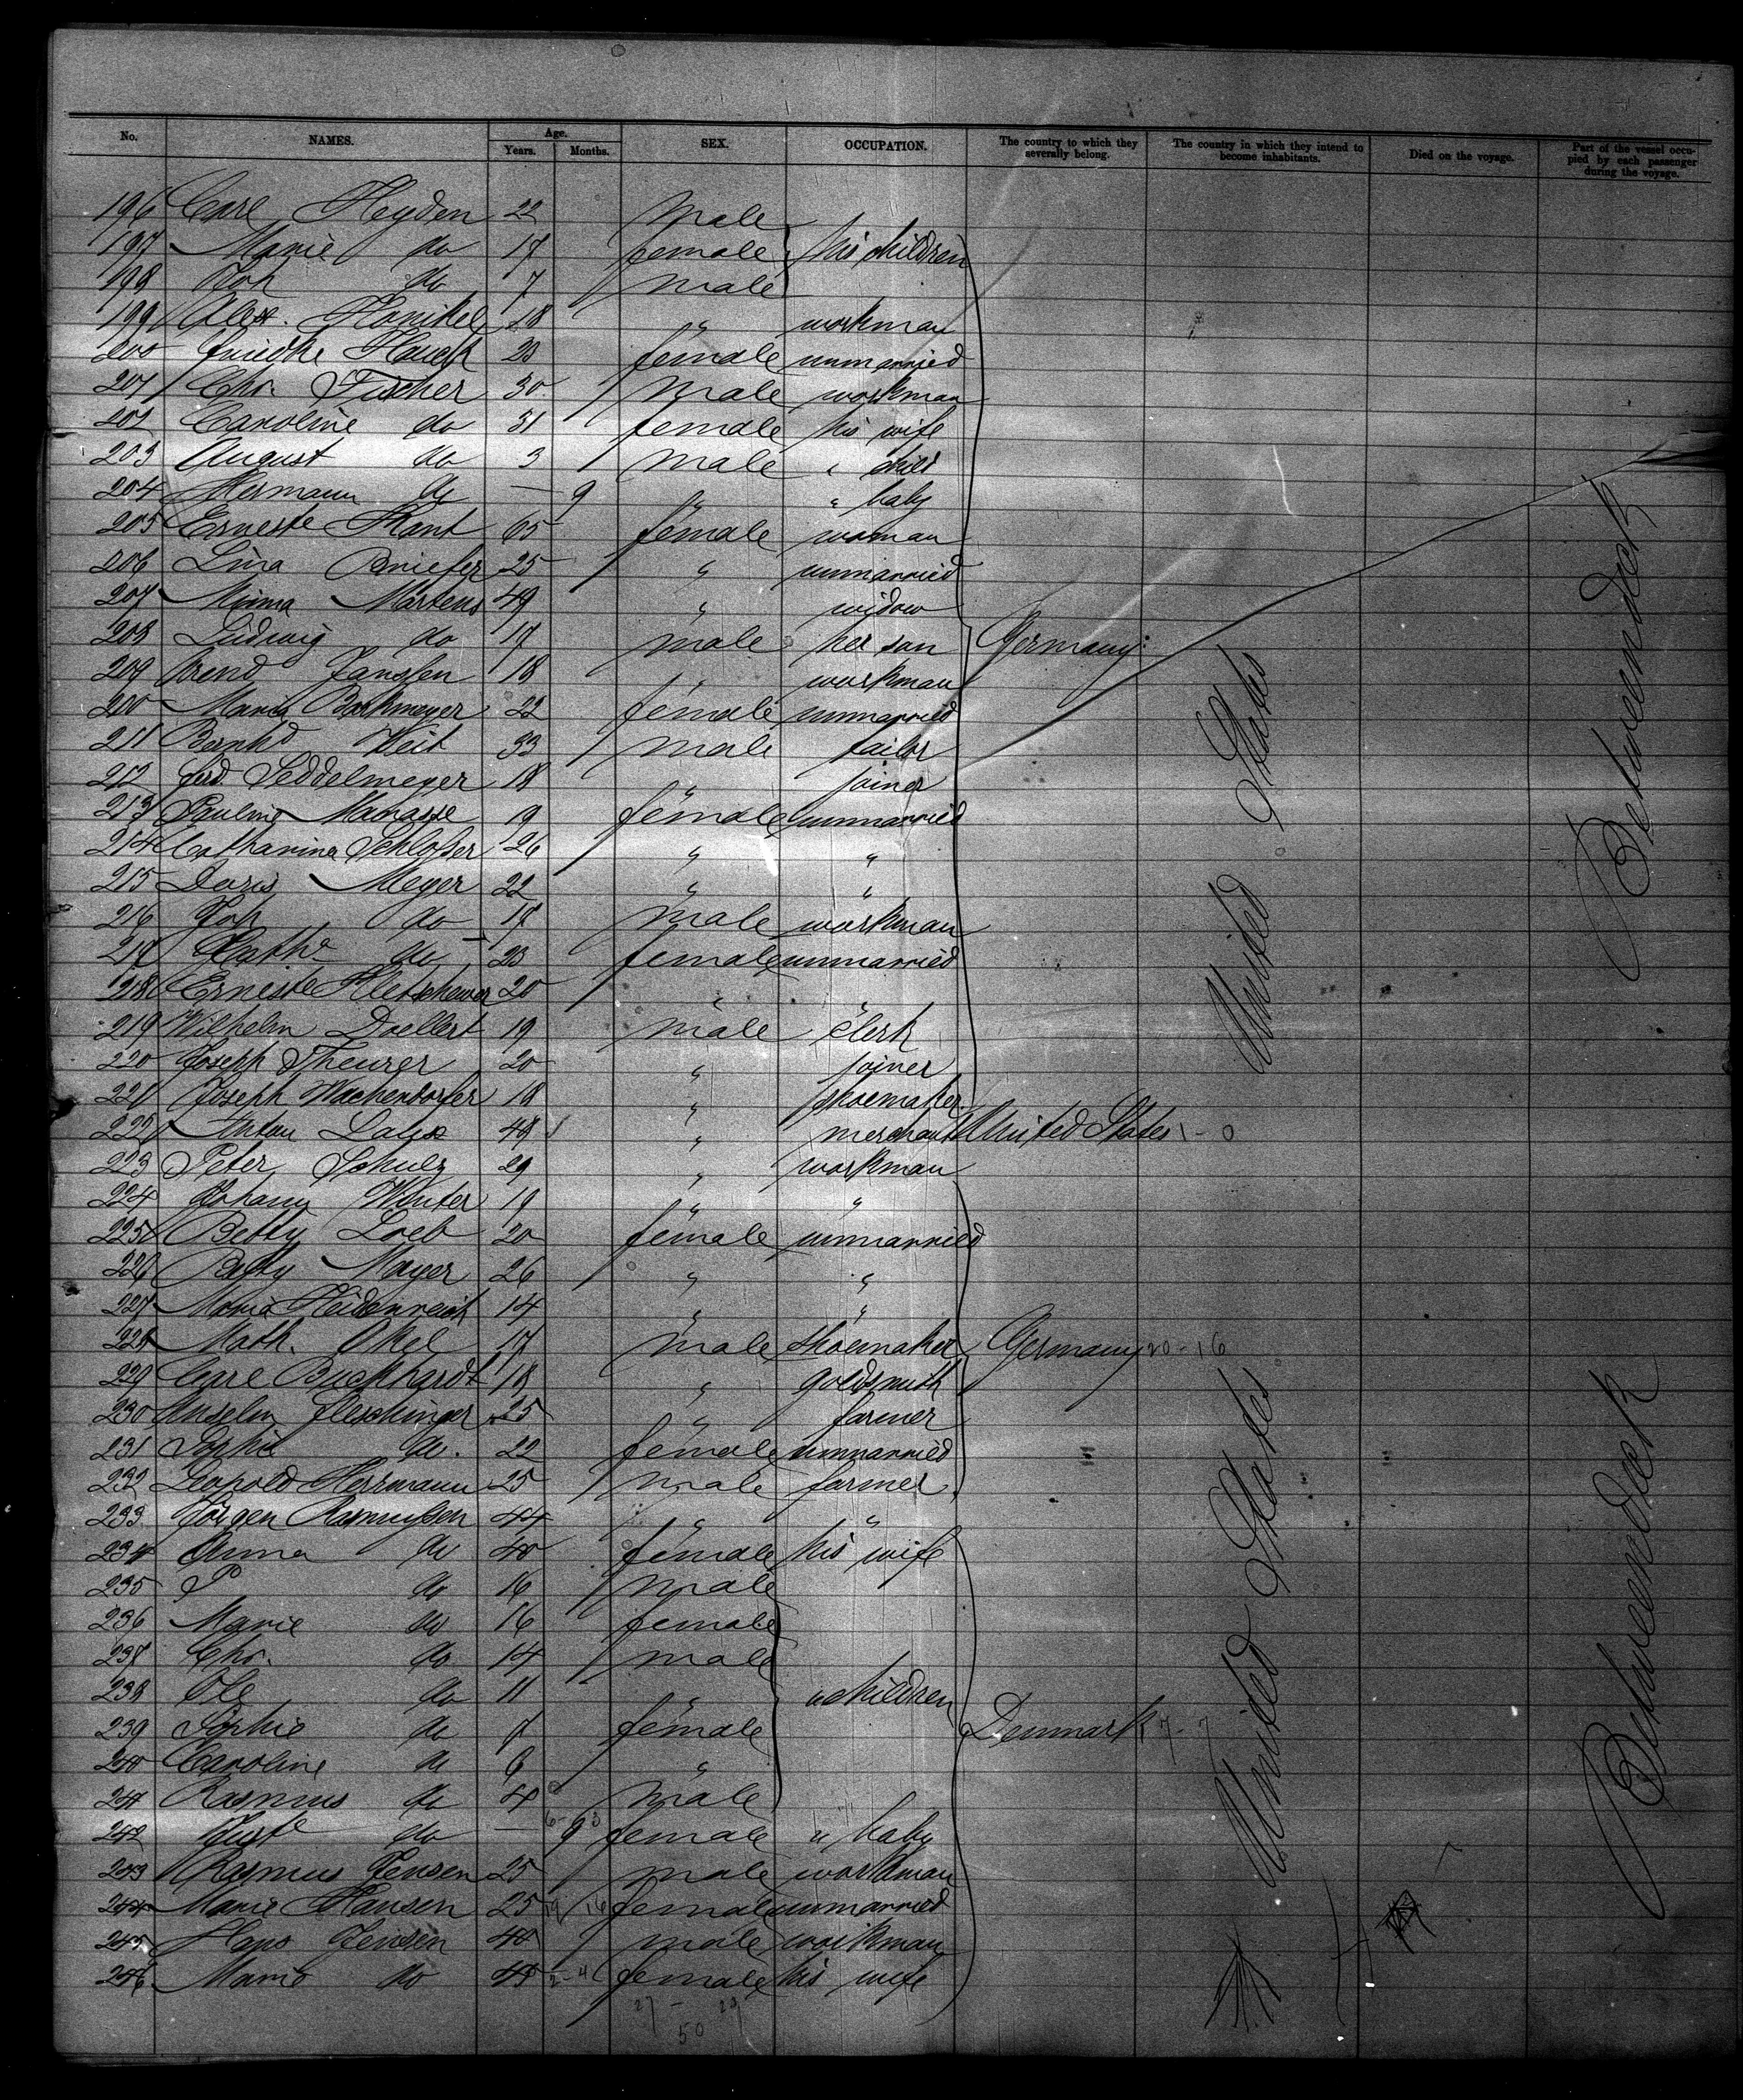 No. NAMES. Age. Years. Months. SEX. OCCUPATION. The country to which they severally belong. The country in which they intend to become inhabitants. Died on the voyage. Part of the vessel occupied by each passenger during the voyage.
196 Carl Heyden 22 male
197 Marie do 17 female his children
198 Joh do 7 male
199 Alex. 18 " workman
200 Hauck 23 female unmarried
201 Chr. Fischer 30 male workman
202 Caroline do 31 female his wife
203 August do 3 male " child
204 Hermann do — 9 " " baby
205 Ernestе 65 female woman
206 Lina 25 " unmarried
207 Minna Martens 49 " widow
208 Ludwig do 17 male her son Germany
209 Arend Janssen 18 " workman
210 Maria Barkmeyer 22 female unmarried
211 Bernhd Veit 33 male tailor
212 Ferd Seddelmeyer 18 " joiner
213 Pauline Manasse 19 female unmarried
214 Catharina Schloßer 26 " "
215 Doris Meyer 22 " "
216 Joh do 17 male workman
217 Cathe do 23 female unmarried
218 Erneste 20 " "
219 Wilhelm Doellert 19 male clerk
220 Joseph Theurer 20 " joiner
221 Joseph Wachendorfer 18 " shoemaker
222 Anton 48 " merchant United States 1-0
223 Peter Schulz 29 " workman
224 Johann Winter 19 " "
225 Betty Loeb 20 female unmarried
226 Betty Mayer 26 " "
227 Maria Heidenreich 14 " "
228 Math. Okel 17 male shoemaker Germany 20-16
229 Carl Buckhardt 18 " goldsmith
230 Anselm Fleschinger 25 " farmer
231 Sophie do. 22 female unmarried
232 Leopold Herrmann 25 male farmer
233 Jörgen Rasmussen 44 " "
234 Anna do 40 female his wife
235 P do 16 male
236 Marie do 16 female
237 Chr. do 14 male
238 Ole do 11 " " children
239 Sophie do 7 female Denmark 7-7
240 Caroline do 6 "
241 Rasmus do 4 male
242 do — 9 female " baby
243 Rasmus Jensen 25 male workman
244 Marie Hansen 25 female unmarried
245 Hans Jensen 40 male workman
246 Marie do female his wife
27 - 23
50
United States
United States
Betweendeck
Betweendeck